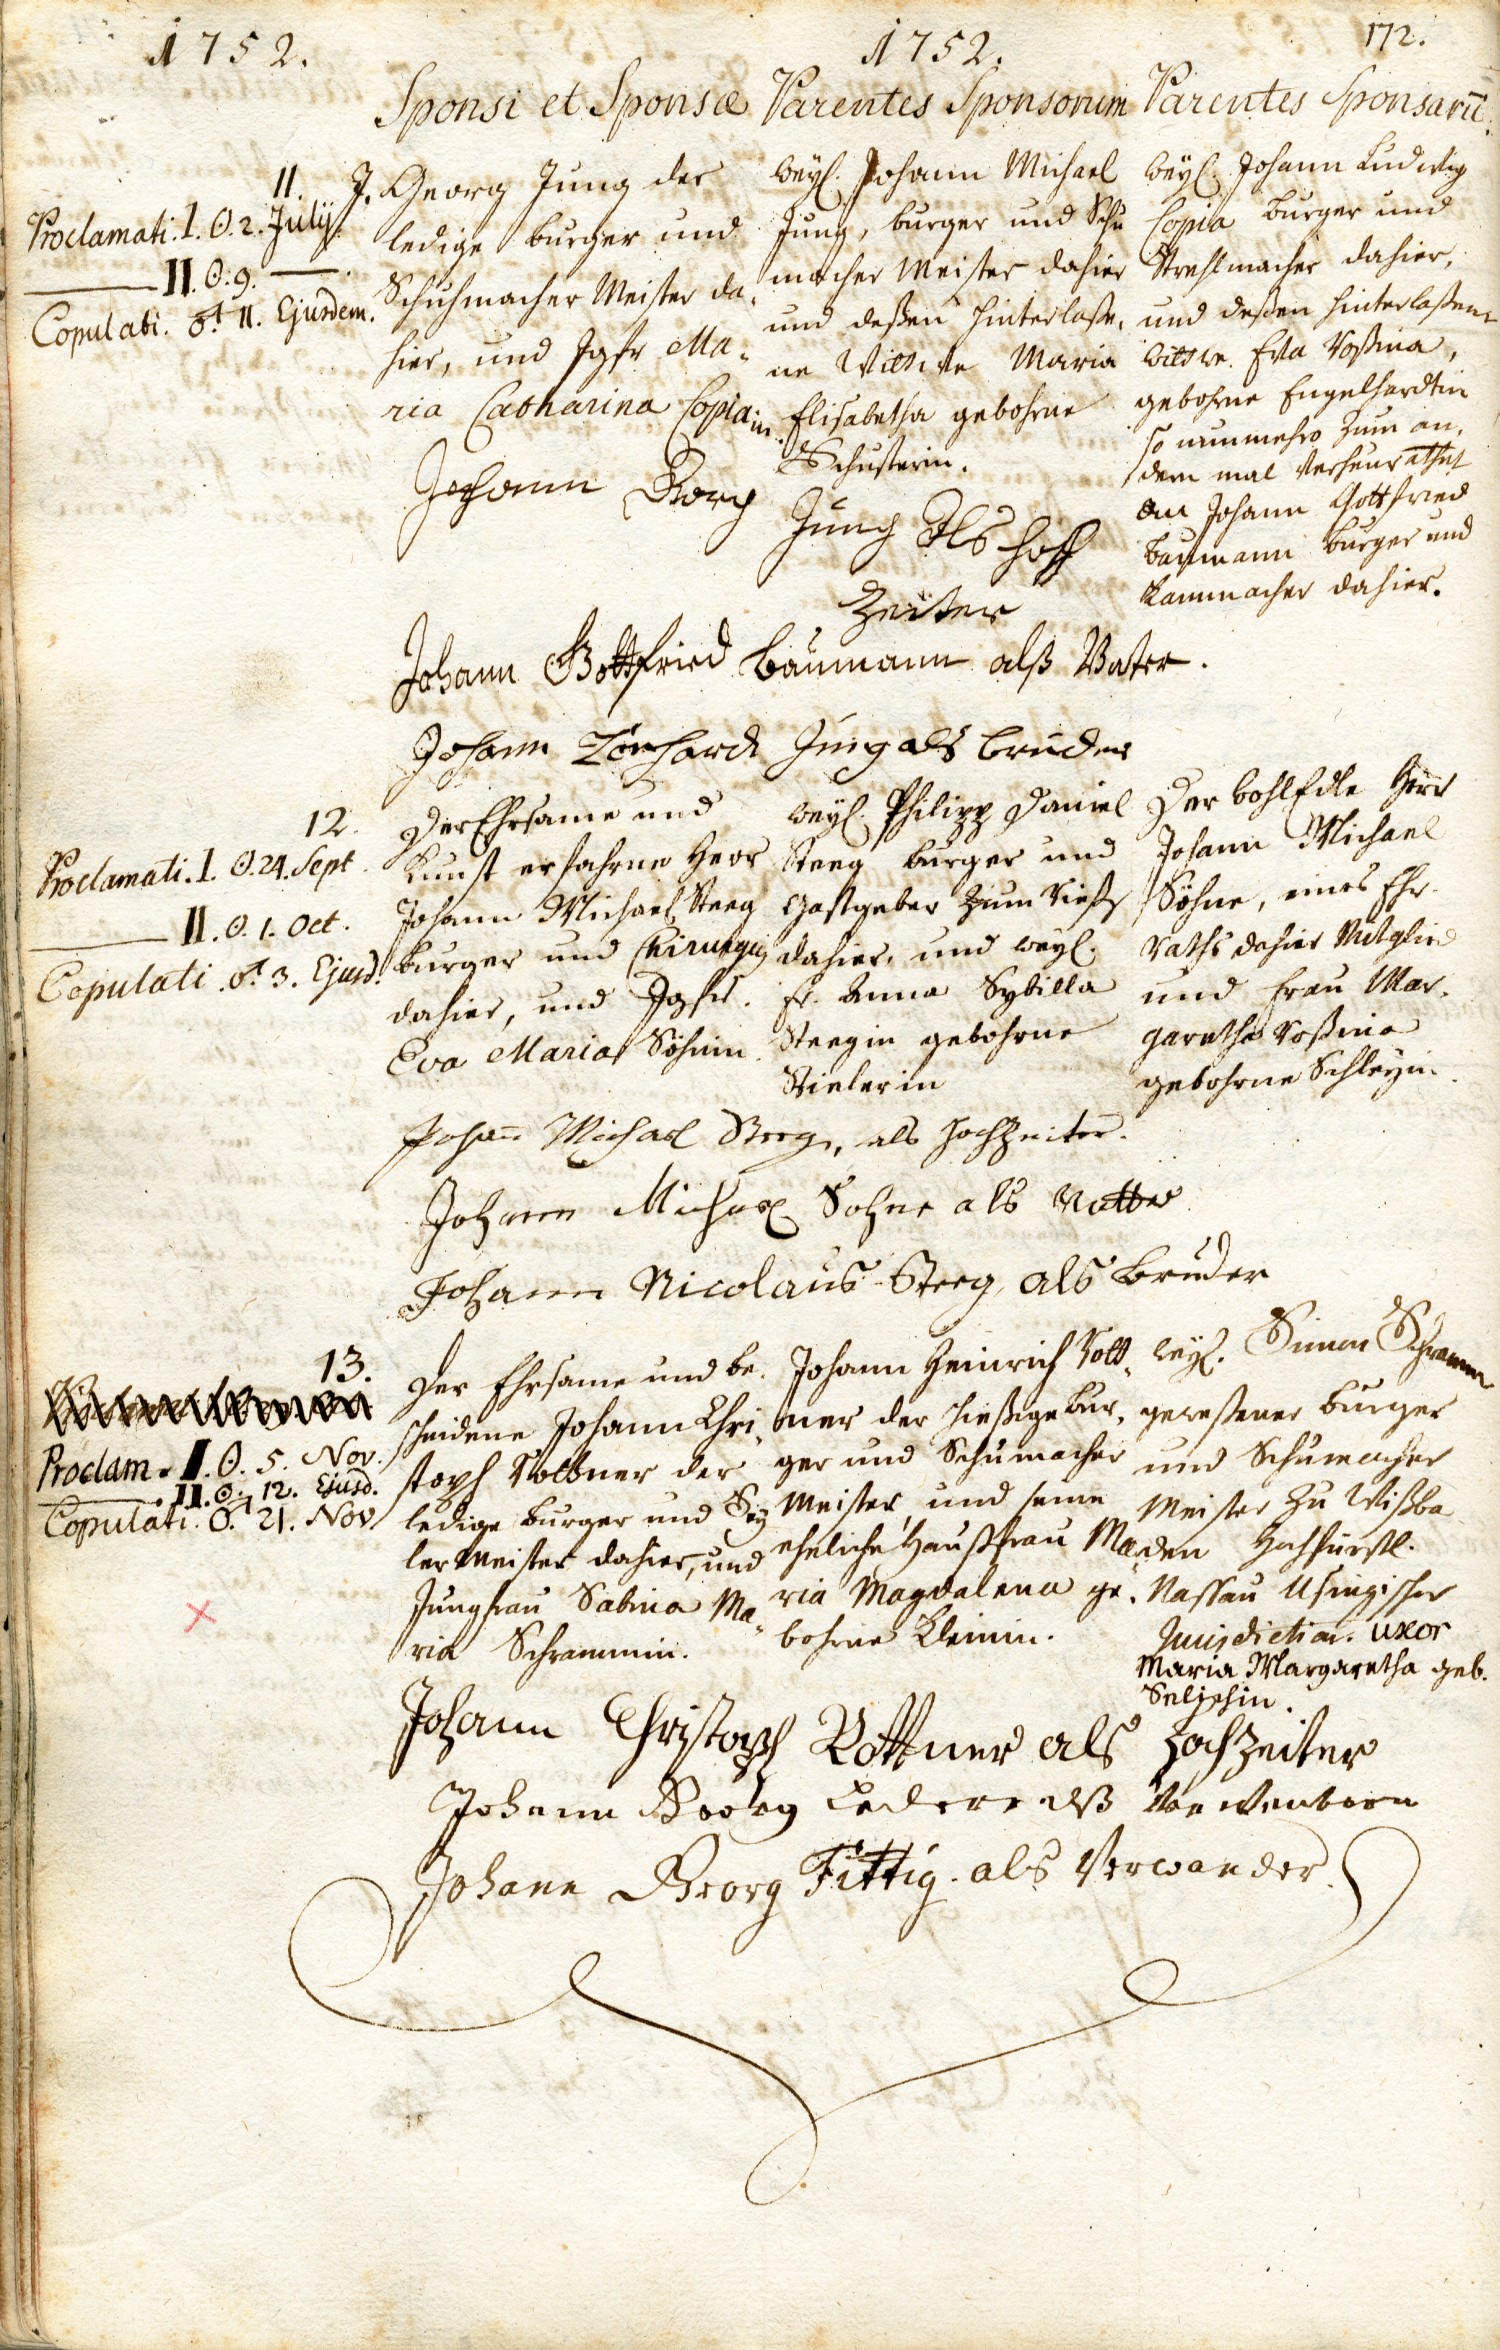 1752.
1752.
172.
Sponsi et Sponsæ
Parentes Sponsorum
Parentes Sponsarū.
11.
Proclamati. I. ʘ. 2. Julij.
II. ʘ. 9. —
Copulati. ♂t 11. Ejusdem.
J. Georg Jung der
ledige burger und
Schuhmacher Meister da-
hier, und Jgfr Ma-
ria Catharina Copiain.
weyl. Johann Michael
Jung, burger und Schu
macher Meister dahier
und deßen hinterlaße-
ne Wittwe Maria
Elisabetha gebohrne
Schusterin.
weyl. Johann Ludwig
Copia burger und
Strehlmacher dahier,
und deßen hinterlaßene
Wittwe Eva Roßina,
gebohrne Engelhardtin
so nunmehro zum an-
dern mal verheurathet
an Johann Gottfried
Baumann burger und
Kammacher dahier.
Johann Georg Jung Als hoch
Zeiter
Johann Gottfried baumann alß Vater.
Johann Lenhardt Jung als bruder
12.
Proclamati. I. ʘ. 24. Sept.
II. ʘ. 1. Oct.
Copulati. ♂t 3. Ejusd.
Der Ehrsame und
Kunst erfahrne Herr
Johann Michael Steeg
burger und Chirurgij
dahier, und Jgfr.
Eva Maria Söhnin.
weyl. Philipp Daniel
Steeg burger und
Gastgeber zum Rieß
dahier, und weyl.
fr. Anna Sybilla
Steegin gebohrne
Stielerin
Der wohlEdle Herr
Johann Michael
Söhne, eines Ehr-
raths dahier Mitglied
und Frau Mar-
garetha Roßina
gebohrne Schleyin.
Johann Michael Steeg, als Hochzeiter.
Johann Michael Sohne als Vatter
Johann Nicolaus Steeg, als bruder
13.
Proclam. I. ʘ. 5. Nov.
II. ʘ. 12. Ejusd.
Copulati. ♂t 21. Nov
Der Ehrsame und be-
scheidene Johann Chri-
stoph Rottner der
ledige burger und Sey
ler Meister dahier, und
Jungfrau Sabina Ma-
ria Schrammin.
Johann Heinrich Rott-
ner der hießige bur-
ger und Schumacher
Meister, und seine
eheliche Haußfrau Ma
ria Magdalena ge-
bohrne Kleinin.
weyl. Simon Schramm
geweßener burger
und Schumacher
Meister zu Wißba
den Hochfürstl.
Nassau Usingischer
Jurisdiction. uxor
Maria Margaretha geb.
Johann Christoph Rottner als Hochzeiter
Johann Georg Lederer alß
Johann Georg Fittig. als Verwander.